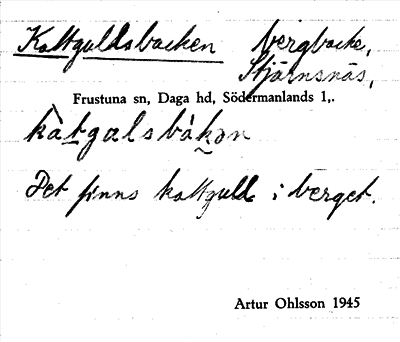 Kattguldsbacken bergbacke,
Stjärnsnäs,
Frustuna sn, Daga hd, Södermanlands l,.
kàt̠galsbàk̠ən
Det finns kattguld i berget.
Artur Ohlsson 1945